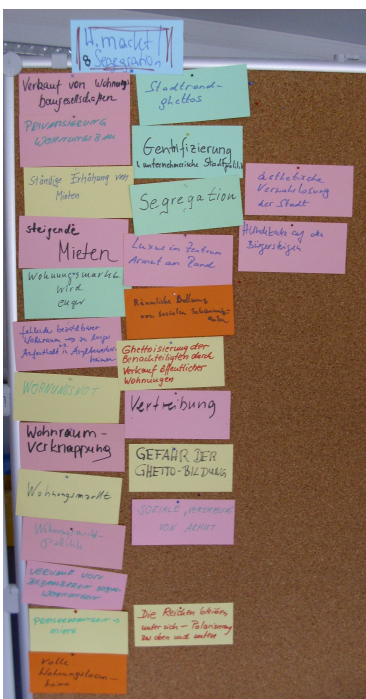 W.markt
8 Segregation
Verkauf von Wohnungs
baugesellschaften
PRIVATISIERUNG
WOHNUNGSBAU
Ständige Erhöhung von
Mieten
steigende
Mieten
Wohnungsmarkt
wird
enger
fehlende bezahlbarer
Wohnraum → zu langer
Aufenthalt in
WOHNUNGSNOT
Wohnraum-
verknappung
Wohnungsmarkt
Wohnungsmarkt-
politik
VERKAUF VON
WOHNUNGEN
volle
Wohnungslosen-
heime
Stadtrand-
ghettos
Gentrifizierung
& unternehmerische Stadtpolitik
Segregation
Luxus im Zentrum
Armut am Rand
Räumliche Ballung
von sozialen
Ghettoisierung der
Benachteiligten durch
Verkauf öffentlicher
Wohnungen
Vertreibung
GEFAHR DER
GHETTO-BILDUNG
SOZIALE
VON ARMUT
Die Reichen bleiben
unter sich – Polarisierung
zw. oben und unten
ästhetische
Verwahrlosung
der Stadt
Hundekacke auf den
Bürgersteigen